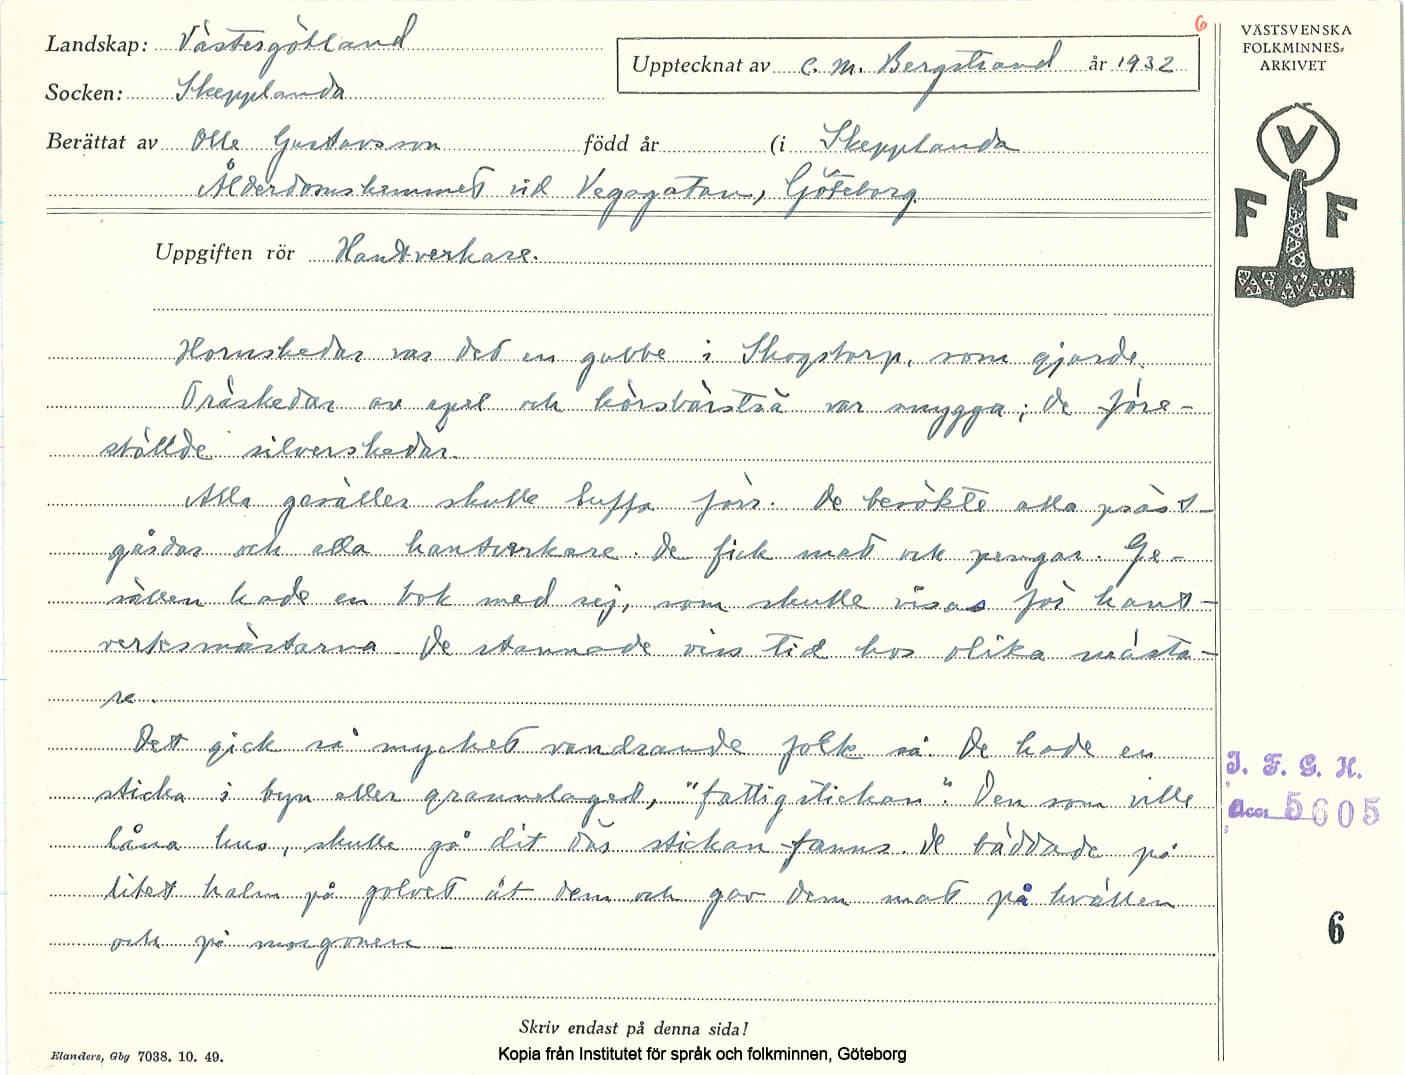 6
Landskap: Västergötland
Upptecknat av C. M. Bergstrand år 1932
Socken: Skepplanda
Berättat av Olle Gustavsson född år (i Skepplanda
Ålderdomshemmet vid Vegagatan, Göteborg.
Uppgiften rör Hantverkare.
Hornskedar var det en gubbe i Skogstorp, som gjorde.
Träskedar av apel och körsbärsträ var snygga; de före-
ställde silverskedar.
Alla gesäller skulle luffa förr. De besökte alla präst-
gårdar och alla hantverkare. De fick mat och pengar. Ge-
sällen hade en bok med sej, som skulle visas för hant-
verksmästarna. De stannade viss tid hos olika mästa-
re.
Det gick så mycket vandrande folk så. De hade en
sticka i byn eller grannelaget, "fattigstickan". Den som ville
låna hus, skulle gå dit där stickan fanns. De bäddade på
litet halm på golvet åt dem och gav dem mat på kvällen
och på morgonen -
Skriv endast på denna sida!
Elanders, Gbg 7038. 10. 49.
Kopia från Institutet för språk och folkminnen, Göteborg
VÄSTSVENSKA
FOLKMINNES-
ARKIVET
V
F F
I. F. G. H.
Acc: 5605
6